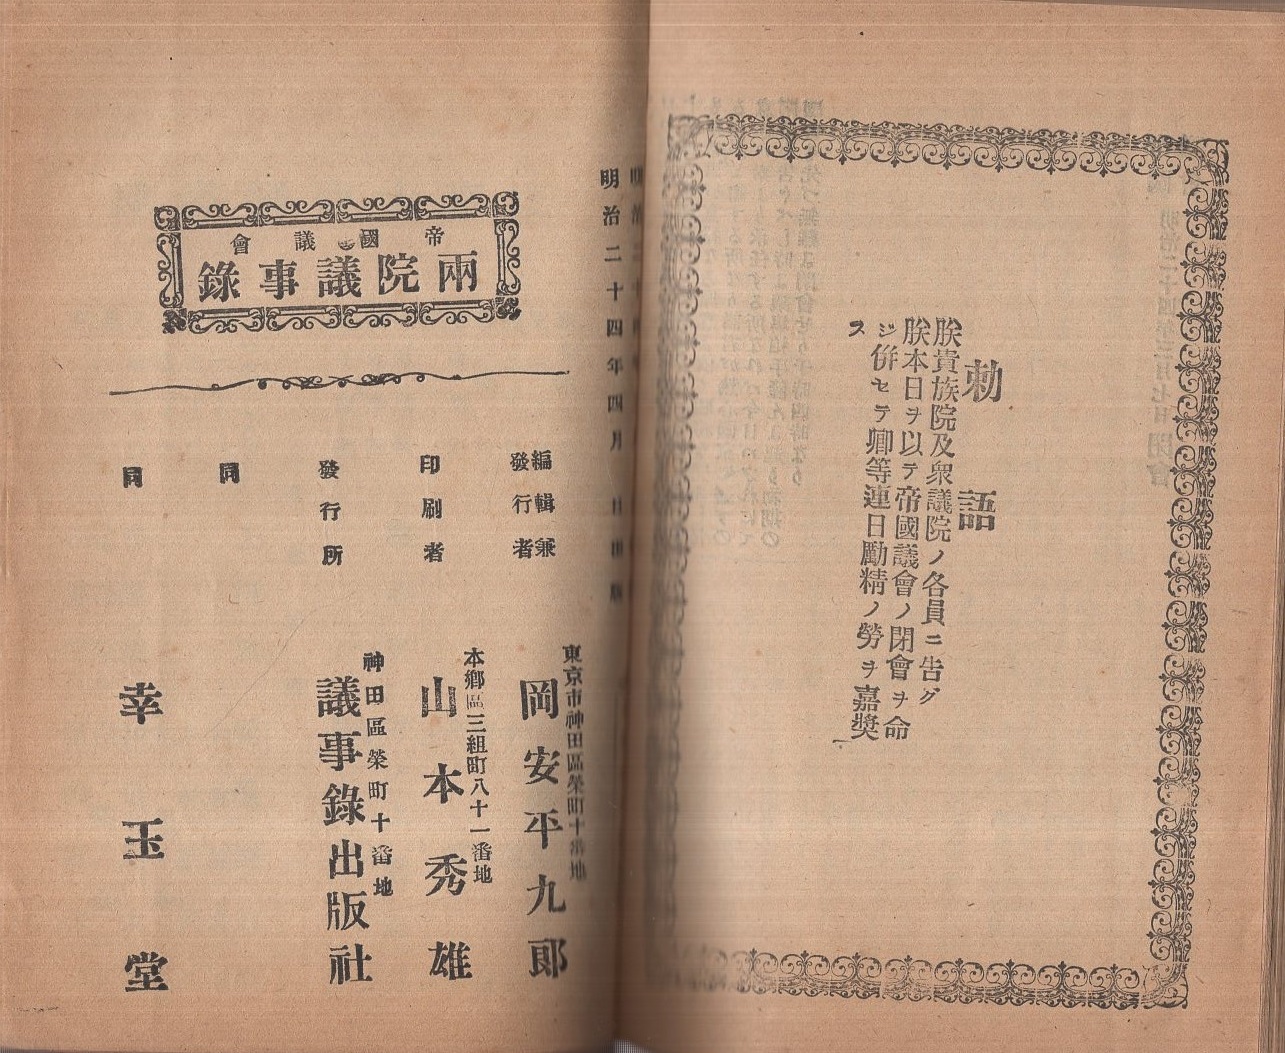 勅語
朕貴族院及衆議院ノ各員ニ告グ
朕本日ヲ以テ帝國議會ノ閉會ヲ命
ジ併セテ卿等連日勵精ノ勞ヲ嘉奬
ス
明治二十四年四月 日出版
帝國議會
兩院議事錄
編輯兼
發行者
東京市神田區榮町十番地
岡安平九郎
印刷者
本鄕區三組町八十一番地
山本秀雄
發行所
神田區榮町十番地
議事錄出版社
同
同
幸玉堂